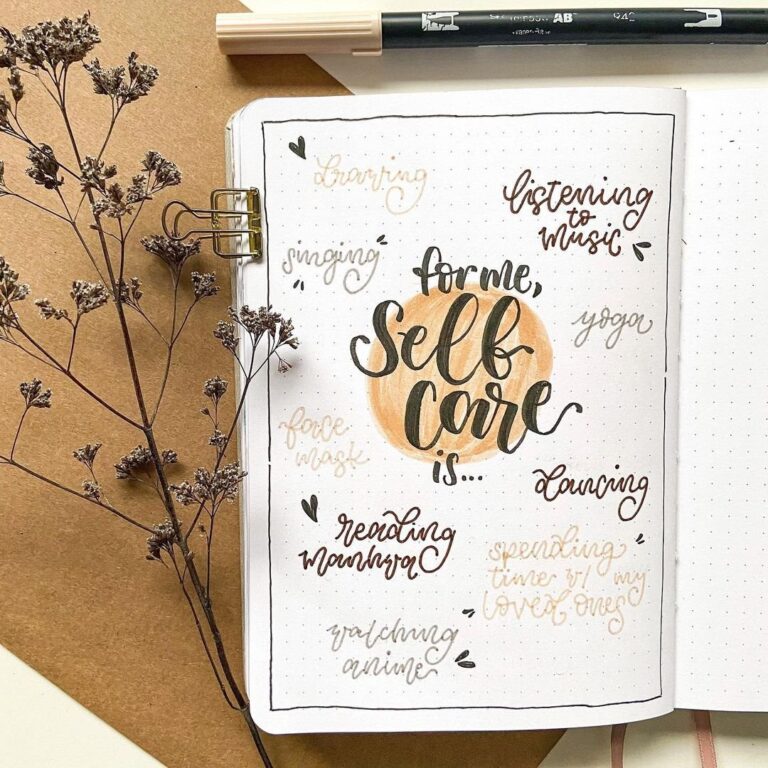 AB
942
drawing
listening
to
music
singing
for me,
self
care
is...
yoga
face
mask
dancing
reading
manhwa
spending
time w/ my
loved ones
watching
anime